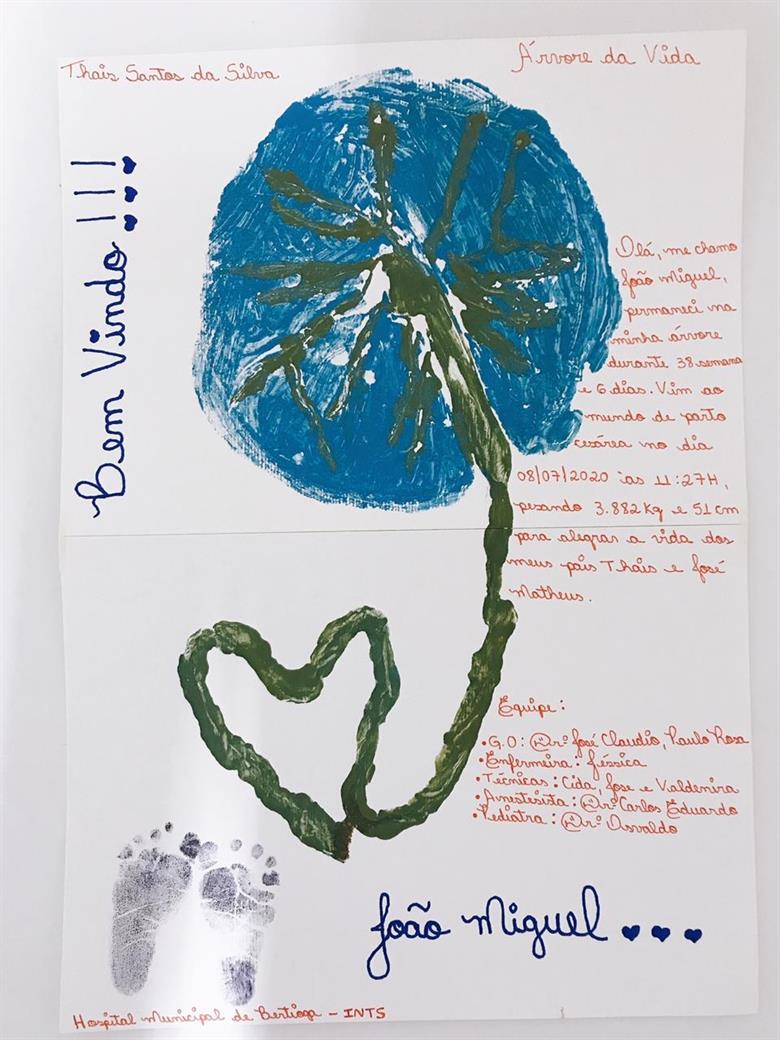 Thais Santos da Silva
Árvore da Vida
Bem Vindo!!!
Olá, me chamo
João Miguel,
permaneci na
minha árvore
durante 38 semana
e 6 dias. Vim ao
mundo de parto
cesárea no dia
08/07/2020 às 11:27H,
pesando 3.882kg e 51cm
para alegrar a vida dos
meus pais Thais e José
Matheus.
Equipe:
• G.O: Drº José Claudio, Paulo Rosa
• Enfermeira: Jéssica
• Técnicas: Cida, Jose e Valdenira
• Anestesista: Drº Carlos Eduardo
• Pediatra: Drº Osvaldo
João Miguel...
Hospital Municipal de Bertioga - INTS